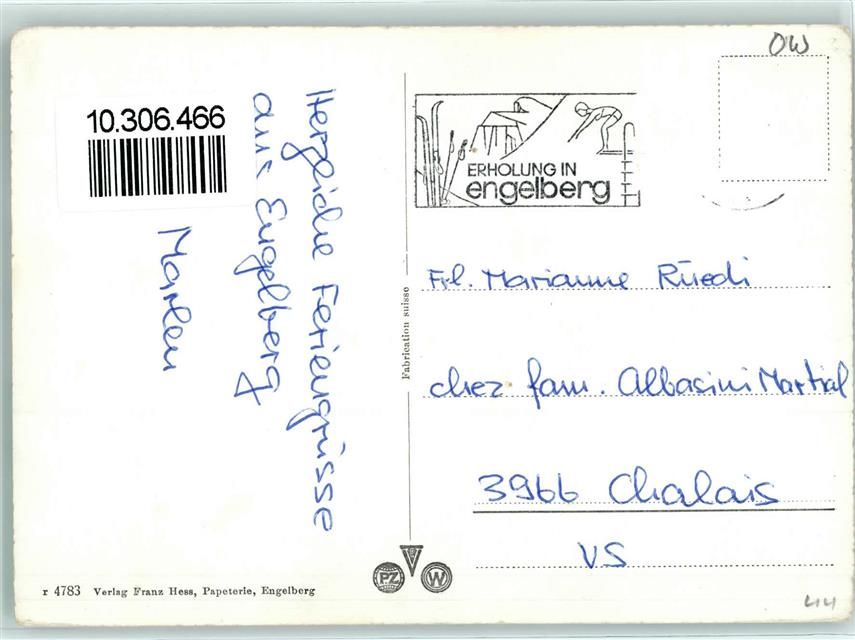 OW
10.306.466
Herzliche Feriengrüsse
aus Engelberg
Marlen
ERHOLUNG IN
engelberg
Fabrication suisse
Frl. Marianne Rüedi
chez fam. Albasini Martial
3966 Chalais
VS
PZ W
r 4783 Verlag Franz Hess, Papeterie, Engelberg
44